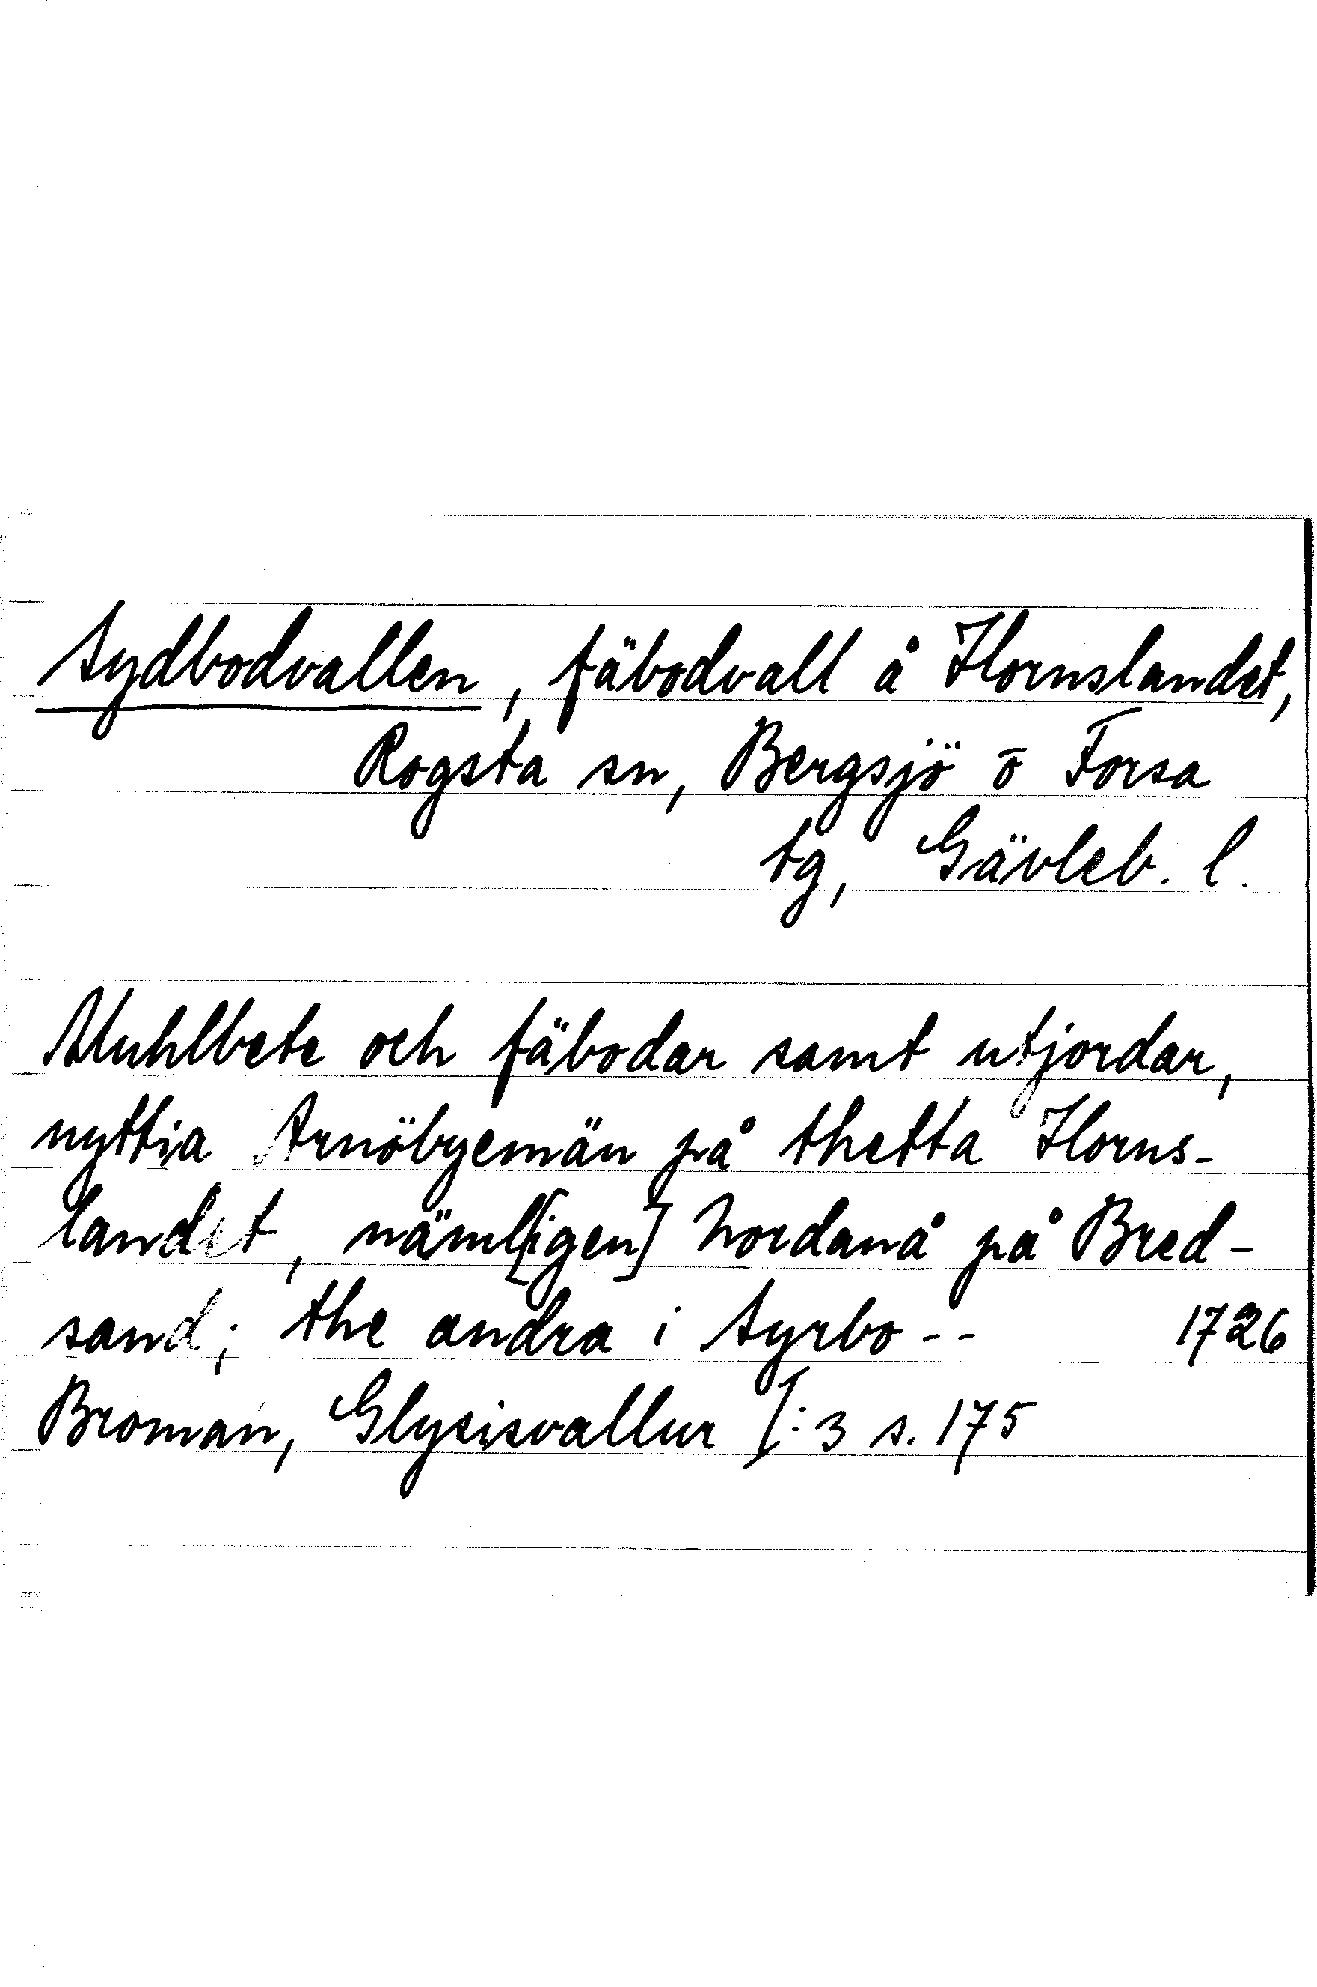 Sydbodvallen, fäbodvall å Hornslandet,
Rogsta sn, Bergsjö o Forsa
tg, Gävleb. l.
Muhlbete och fäbodar samt utjordar,
nyttia Arnöbyemän på thetta Horns-
landet, näml[igen] Nordanå på Bred-
sand; the andra i Syrbo -- 1726
Broman, Glysisvallur I:3 s. 175